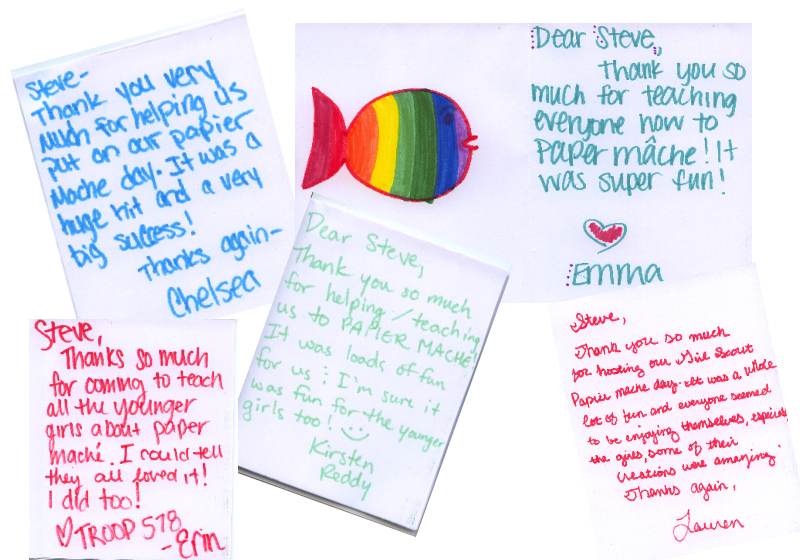 Steve-
Thank you very
much for helping us
put on our papier
mache day. It was a
huge hit and a very
big success!
Thanks again-
Chelsea
Dear Steve,
Thank you so
much for teaching
everyone how to
paper mâche! It
was super fun!
Emma
Dear Steve,
Thank you so much
for helping/teaching
us to PAPIER MACHE!
It was loads of fun
for us; I'm sure it
was fun for the younger
girls too!
Kirsten
Reddy
Steve,
Thanks so much
for coming to teach
all the younger
girls about paper
maché. I could tell
they all loved it!
I did too!
♡TROOP 578
-Erin
Steve,
Thank you so much
for hosting our Girl Scout
Papier mache day. It was a whole
lot of fun and everyone seemed
to be enjoying themselves, especially
the girls, some of their
creations were amazing.
Thanks again,
Lauren